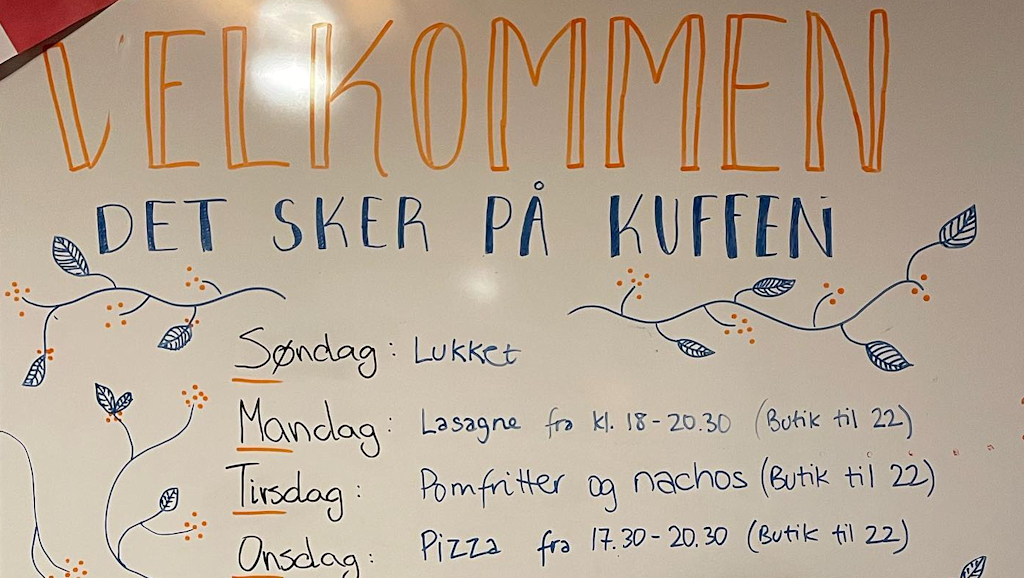 VELKOMMEN
DET SKER PÅ KUFFEN
Søndag: Lukket
Mandag: Lasagne fra kl. 18-20.30 (Butik til 22)
Tirsdag: Pomfritter og nachos (Butik til 22)
Onsdag: Pizza fra 17.30-20.30 (Butik til 22)